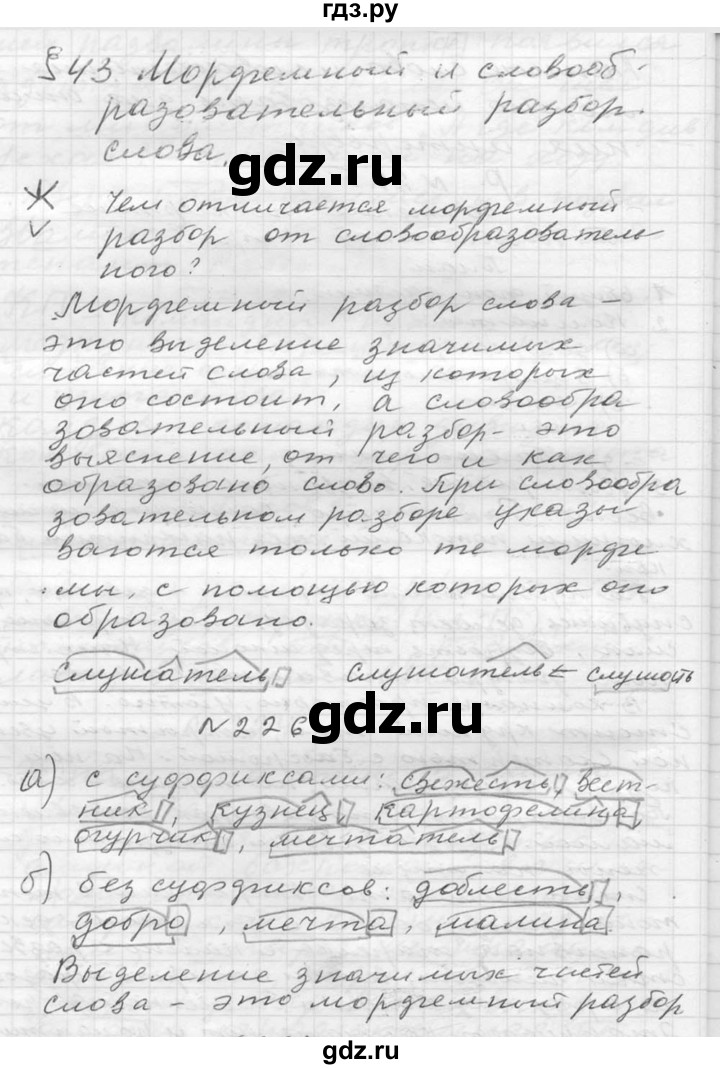 гдз.ру
§43 Морфемный и словооб-
разовательный разбор
слова.
gdz.ru
Чем отличается морфемный
разбор от словообразователь
ного?
Морфемный разбор слова –
это выделение значимых
частей слова, из которых
оно состоит, а словообра
зовательный разбор- это
выяснение, от чего и как
образовано слово. При словообра
зовательном разборе указы
ваются только те морфе
мы, с помощью которых оно
образовано.
слушатель слушатель ← слушать
№226
gdz.ru
а) с суффиксами: свежесть, вест-
ник, кузнец, картофелина,
огурчик, мечтатель
б) без суффиксов: доблесть,
добро, мечта, малина.
Выделение значимых частей
слова – это морфемный разбор
gdz.ru